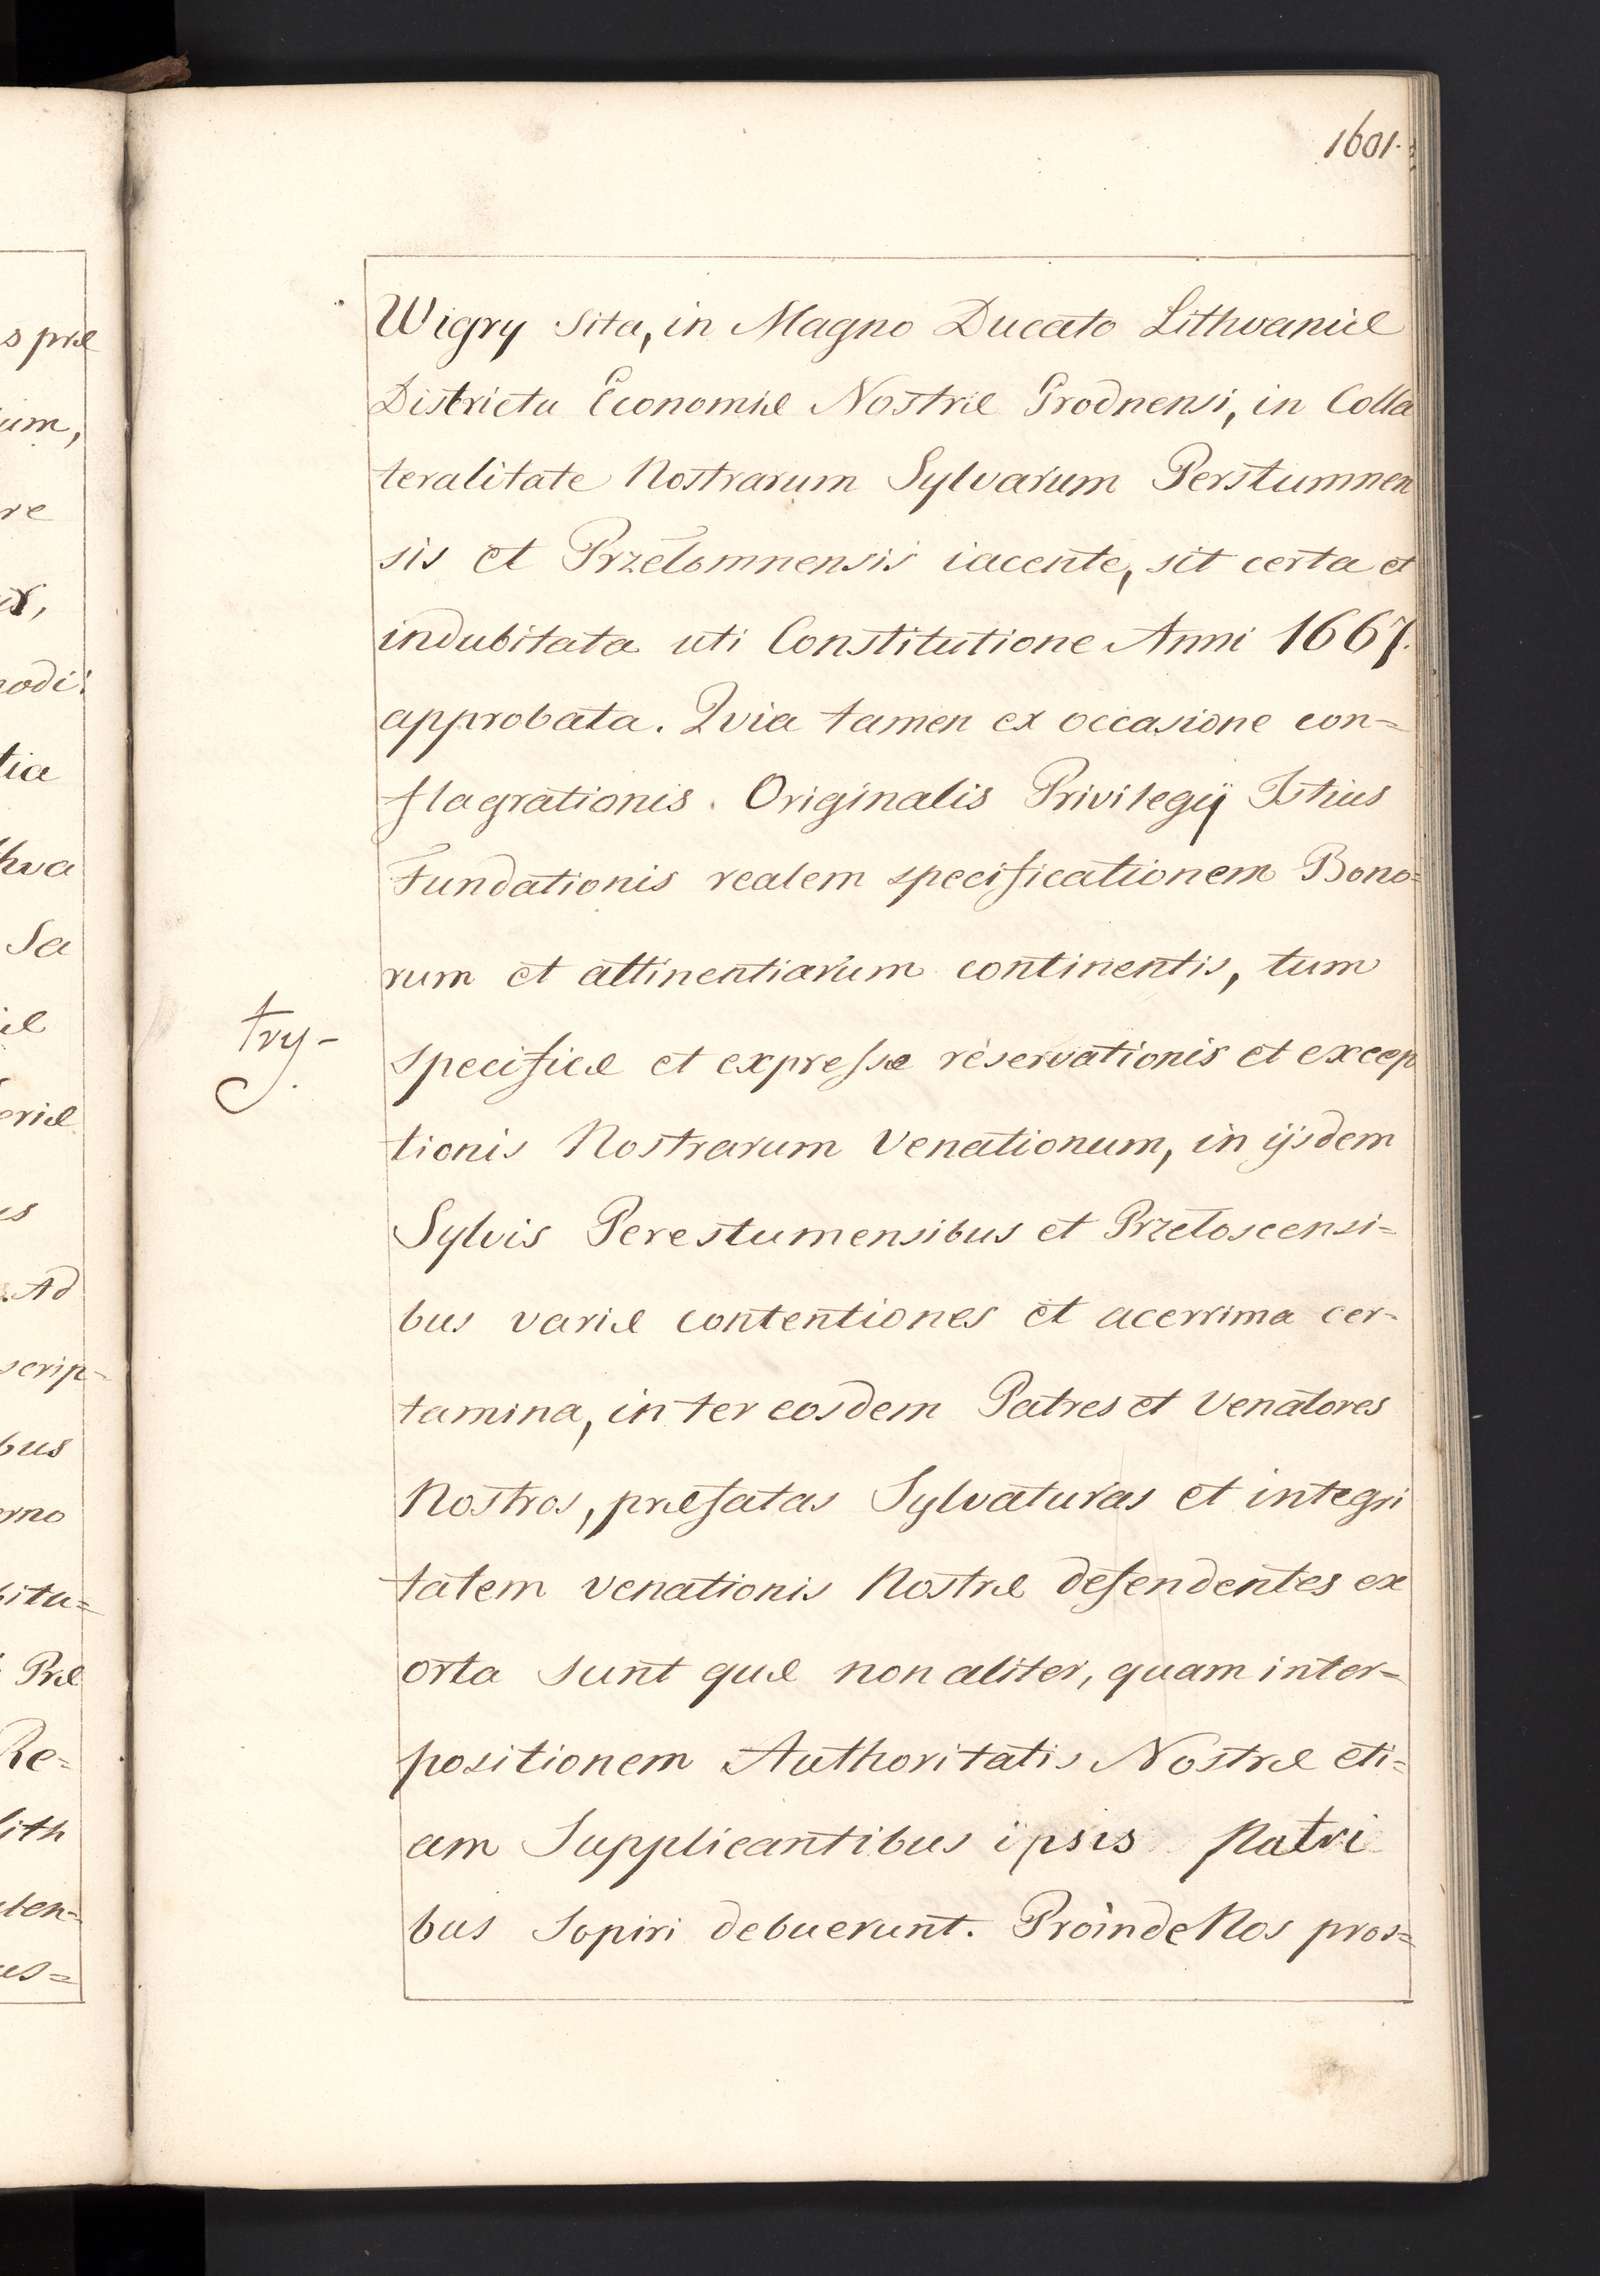 1601.
Wigry sita, in Magno Ducato Lithvaniæ
Districtu Economiæ Nostræ Grodnensi, in Colla
teralitate Nostrarum Sylvarum Perstumnen
sis et Przełomnensis iacente, sit certa et
indubitata uti Constitutione Anni 1667.
approbata. Qvia tamen ex occasione con=
flagrationis. Originalis Privilegÿ Istius
Fundationis realem specificationem Bono=
rum et attinentiarum continentis, tum
try-
specificæ et expressæ reservationis et excep
tionis Nostrarum Venationum, in ijsdem
Sylvis Perestumensibus et Przełoscensi=
bus variæ contentiones et acerrima cer-
tamina, inter eosdem Patres et Venatores
Nostros, præfatas Sylvaturas et integri
tatem venationis Nostræ defendentes ex
orta sunt quæ non aliter, quam inter=
positionem Authoritatis Nostræ eti=
am Supplicantibus ipsis Patri
bus sopiri debuerunt. Proinde Nos pros=
s præ
um,
re
odi:
tia
hva
Sa
æ
eriæ
s
. Ad
scrip-
bus
erno
bitu=
Præ
Re=
lith
ten=
us=